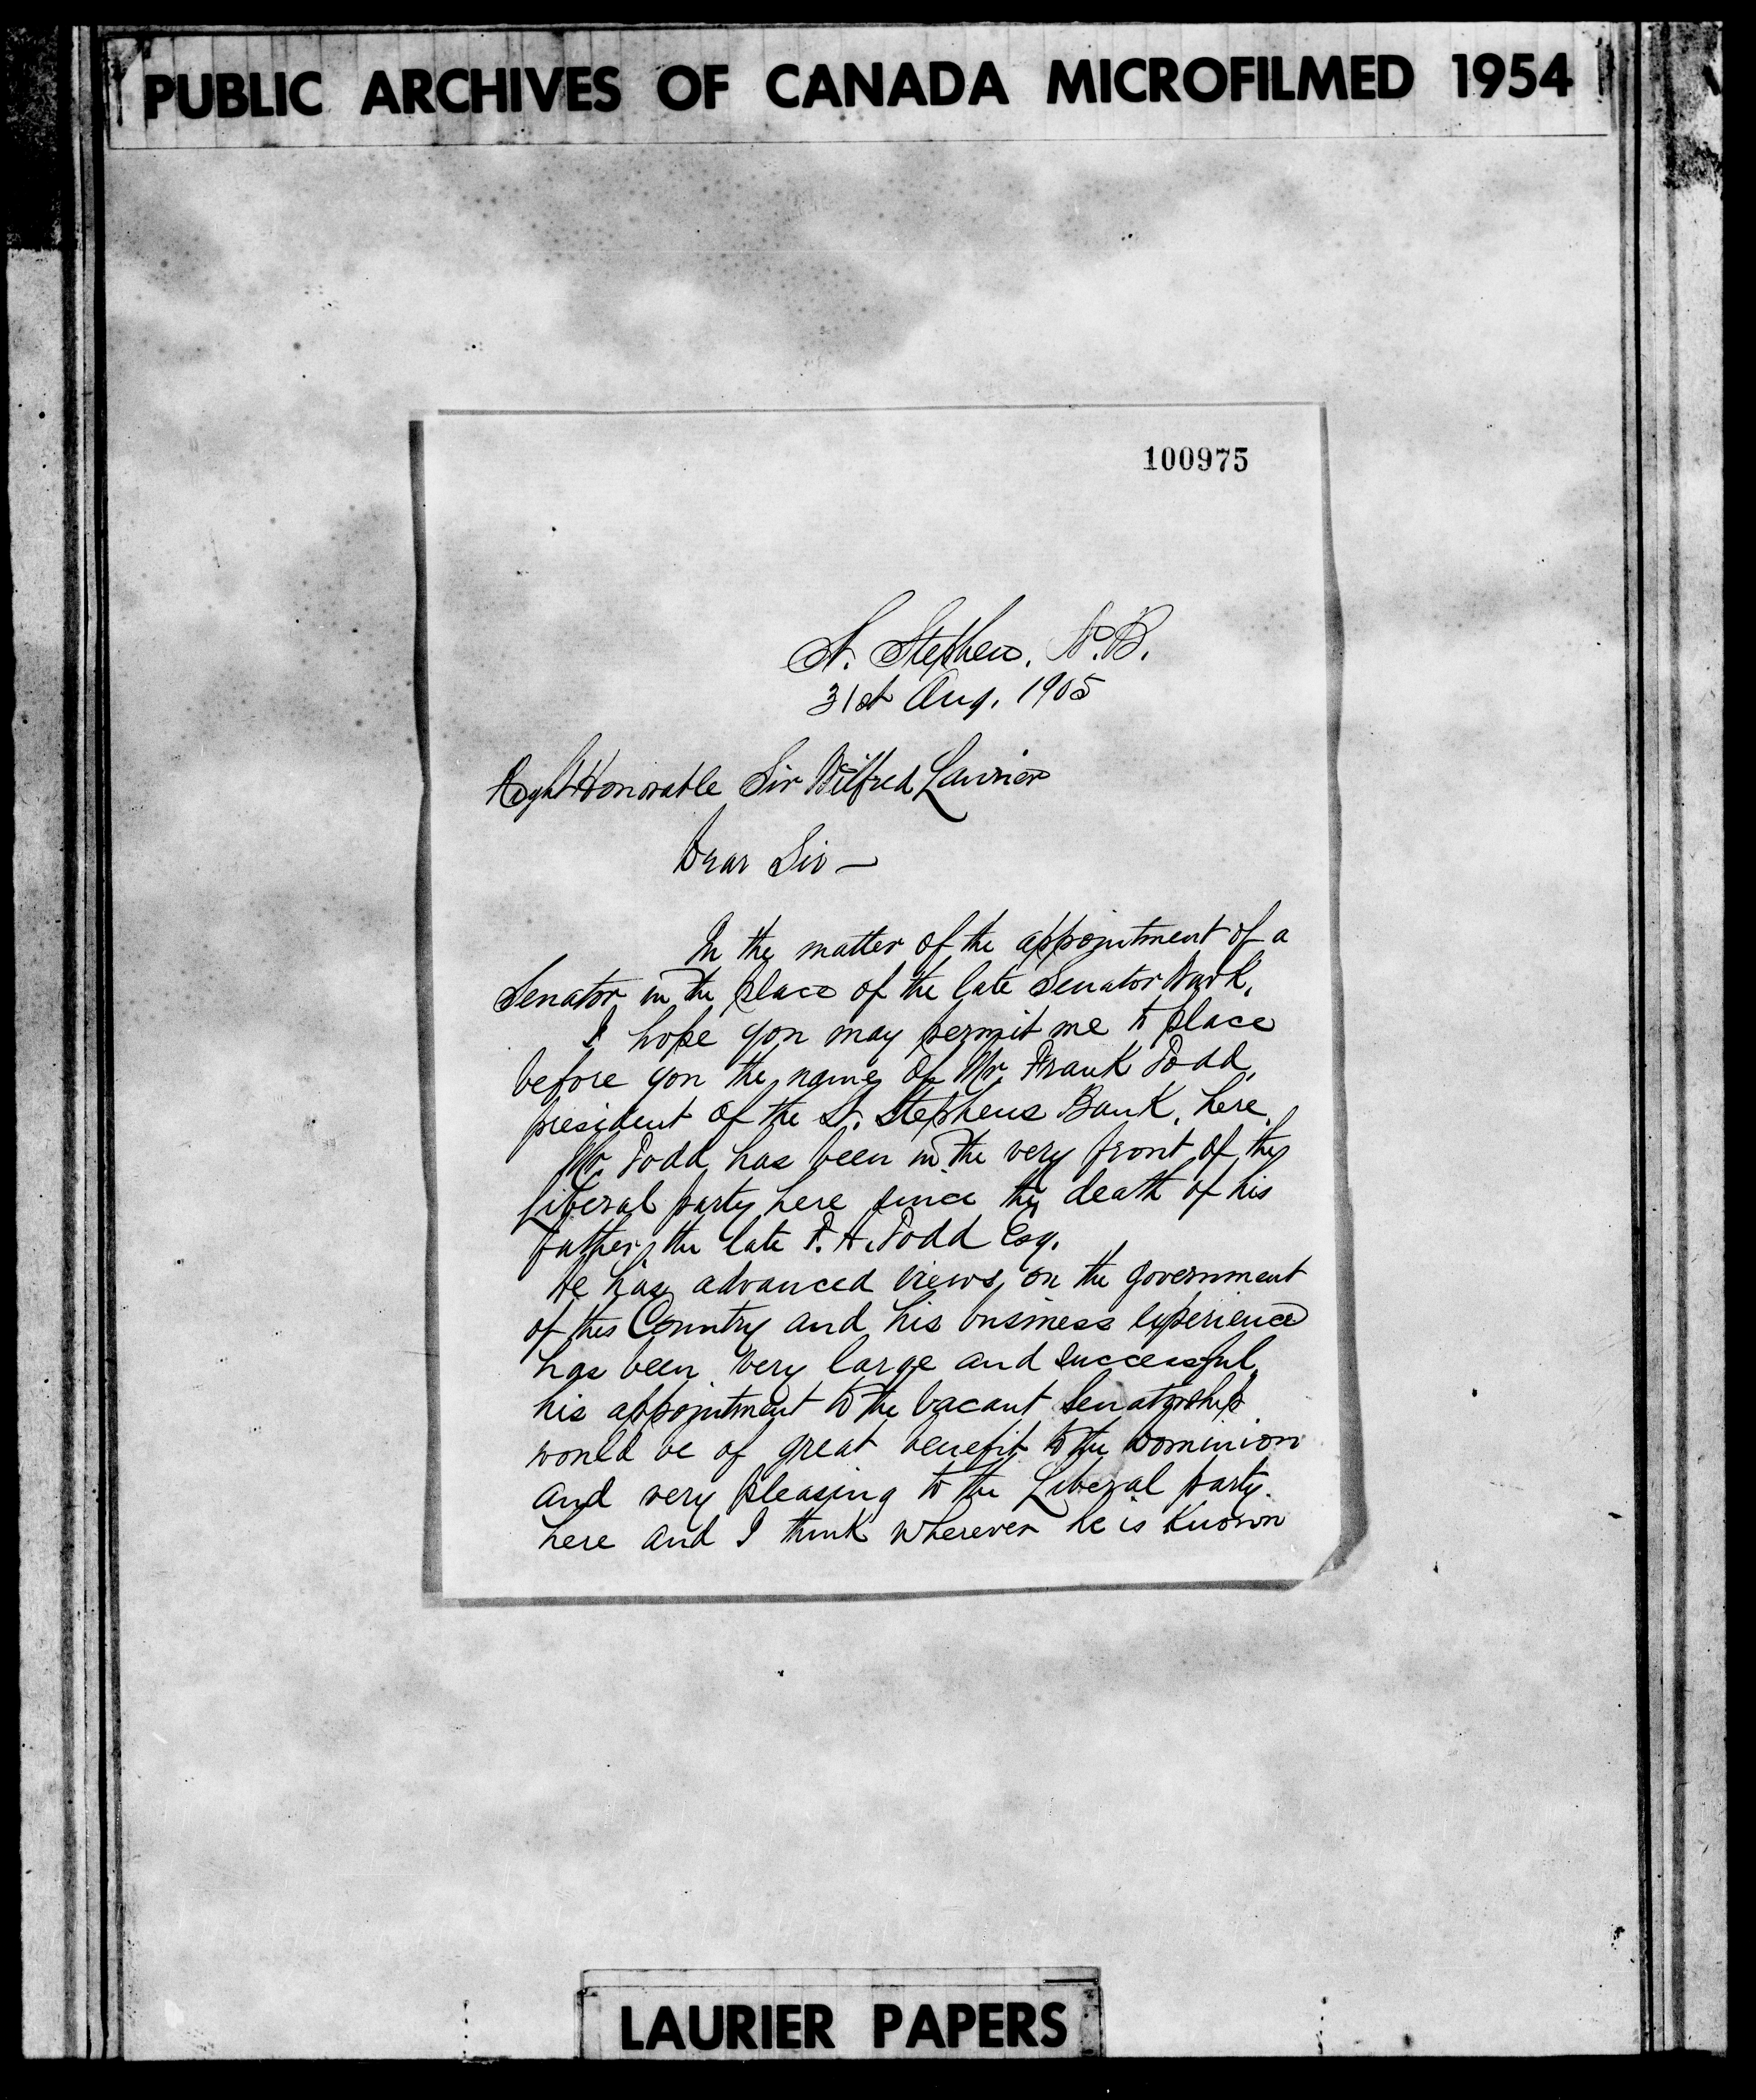 PUBLIC ARCHIVES OF CANADA MICROFILMED 1954
100975
St. Stephen, N.B.
31st Aug. 1905
Right Honorable Sir Wilfred Laurier
Dear Sir —
In the matter of the appointment of a
Senator in the place of the late Senator Wark,
I hope you may permit me to place
before you the name of Mr. Frank Todd,
president of the St. Stephens Bank, here.
Mr. Todd has been in the very front of the
Liberal party here since the death of his
father, the late F. H. Todd Esq.
he has advanced views on the government
of this Country and his business experience
has been very large and successful,
his appointment to the vacant Senatorship
would be of great benefit to the Dominion
and very pleasing to the Liberal party.
here and I think wherever he is known
LAURIER PAPERS